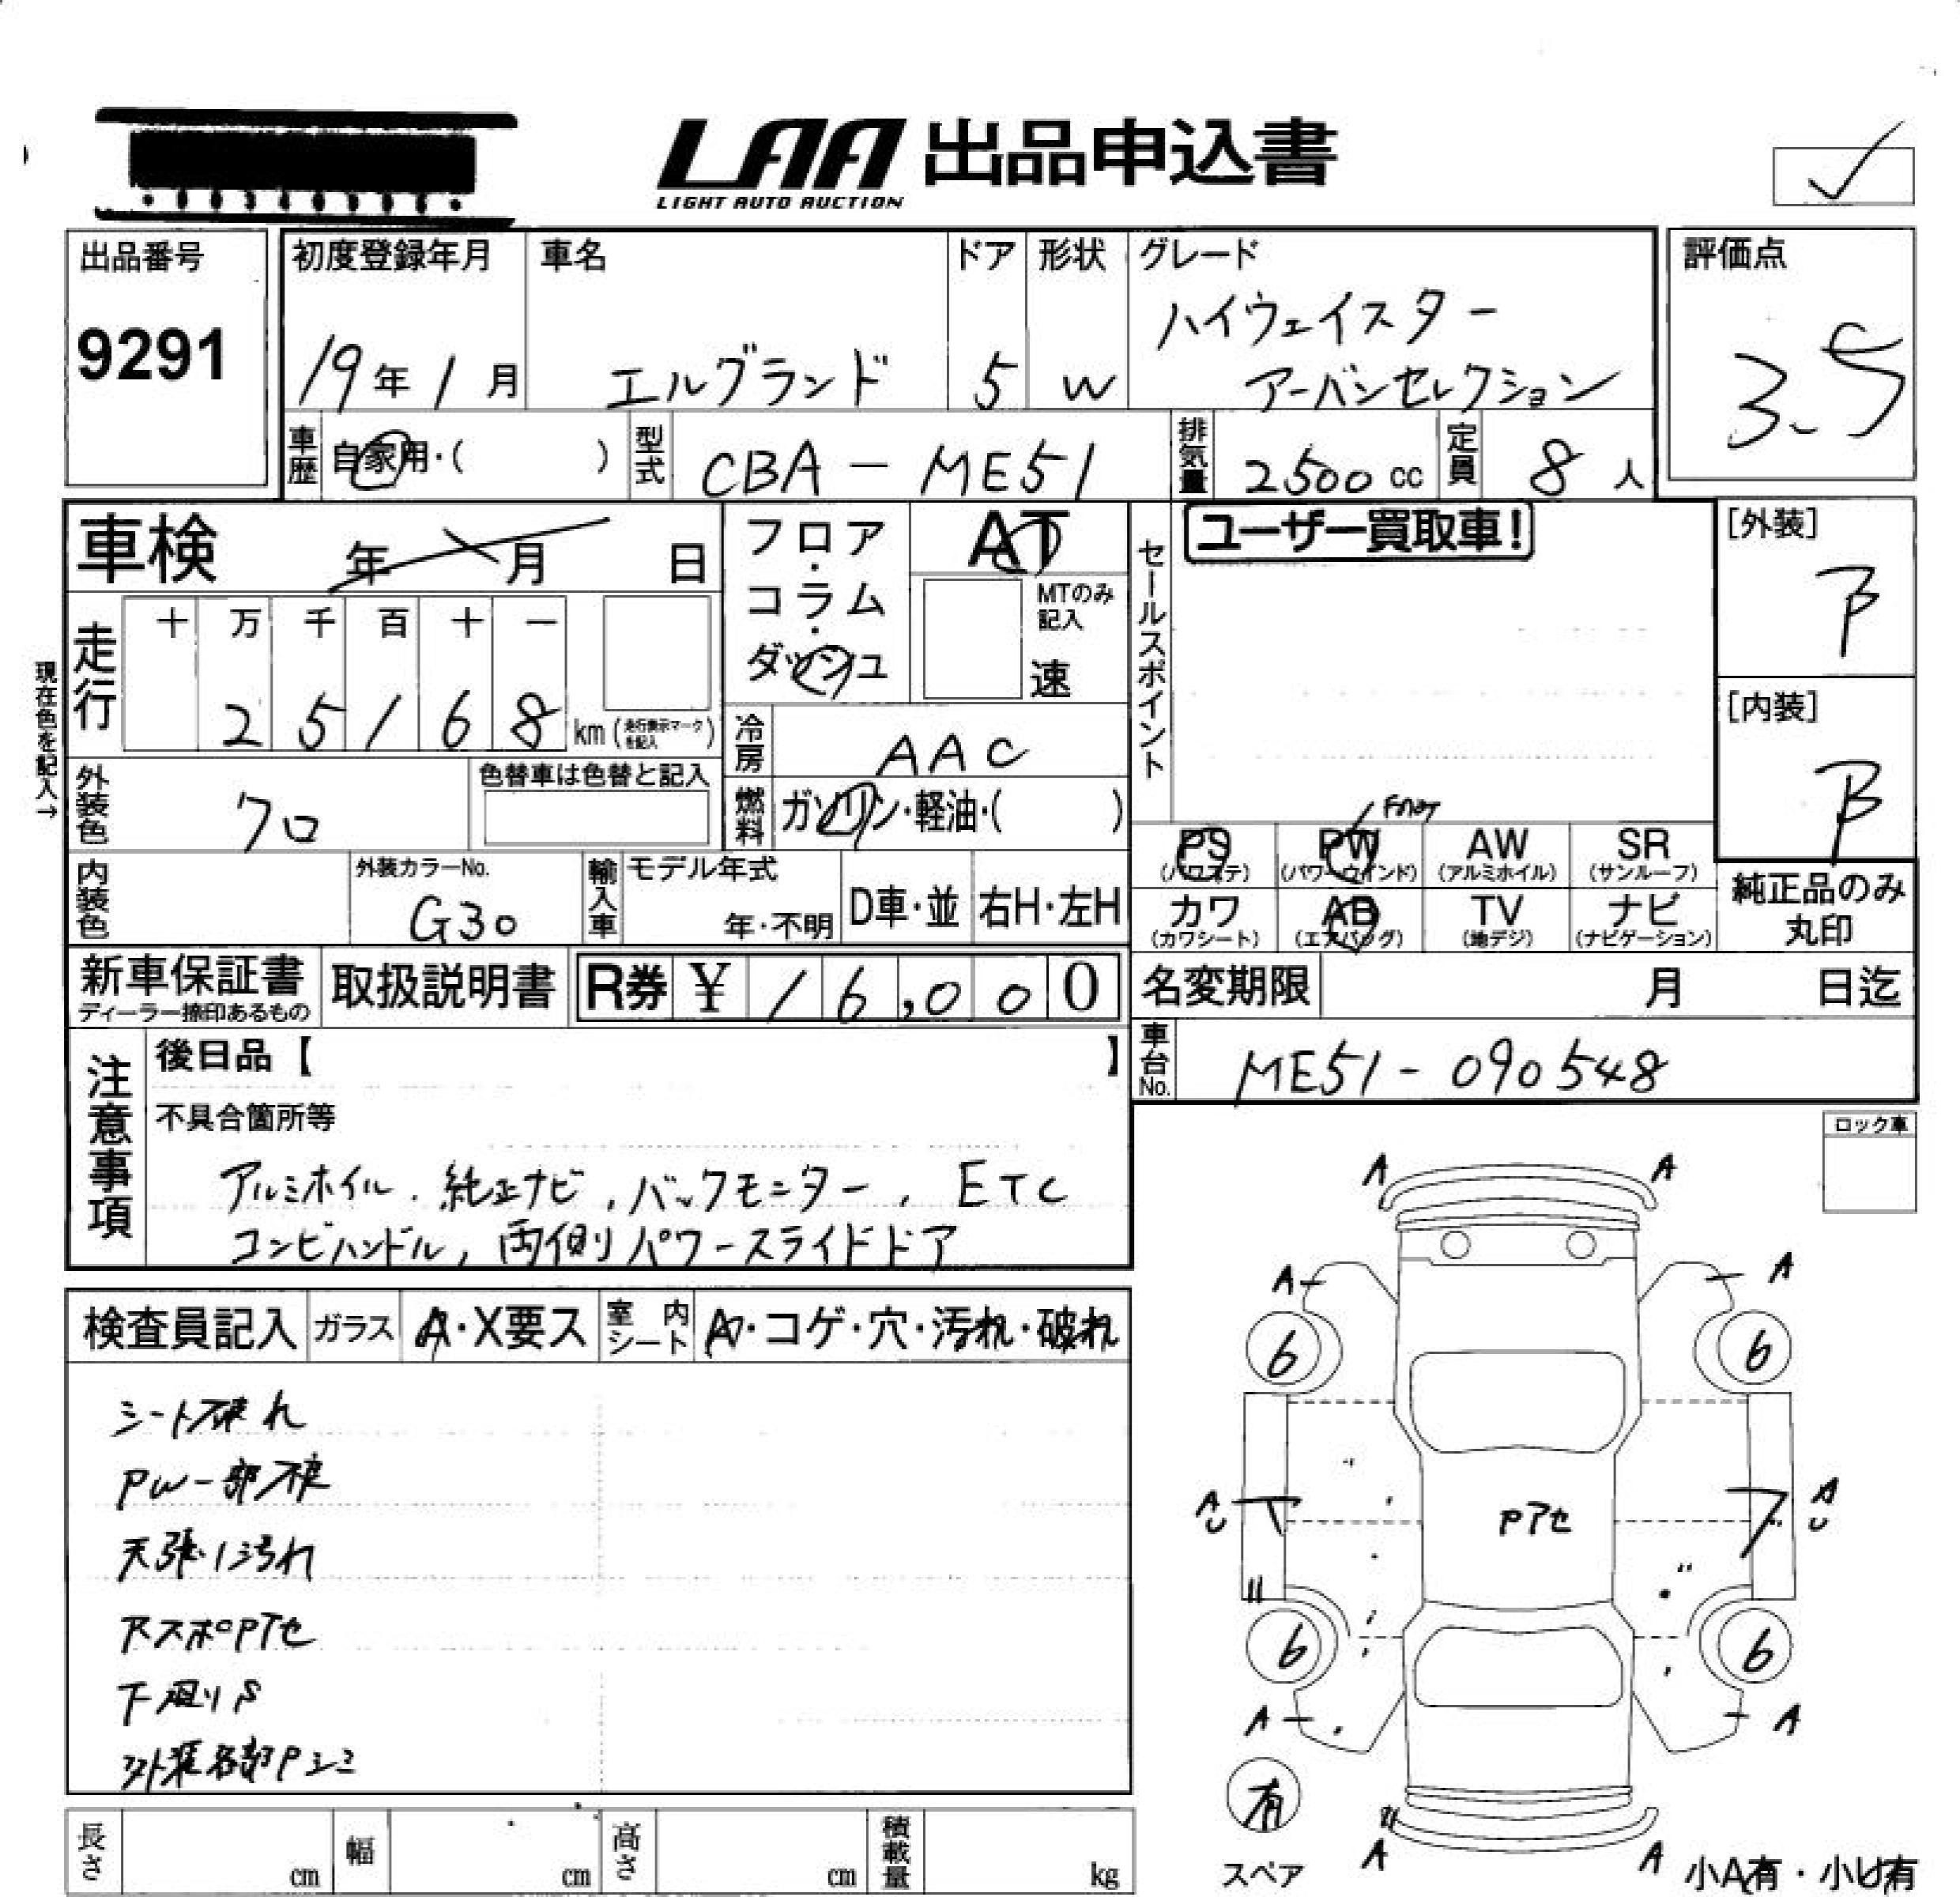 LAA 出品申込書
LIGHT AUTO AUCTION
出品番号
9291
初度登録年月
19年1月
車名
エルグランド
ドア
5
形状
W
グレード
ハイウェイスター
アーバンセレクション
評価点
3.5
車歴 自家用・( )
型式 CBA - ME51
排気量 2500cc
定員 8人
車検 年 月 日
フロア・コラム・ダッシュ
AT
MTのみ記入
速
セールスポイント
ユーザー買取車!
[外装]
B
[内装]
B
現在色を記入→
走行
十 万 千 百 十 一
2 5 1 6 8 km (走行表示マークを記入)
冷房 AAC
外装色 クロ
色替車は色替と記入
燃料 ガソリン・軽油・( )
内装色
外装カラーNo.
G30
輸入車
モデル年式
年・不明
D車・並
右H・左H
PS (パワステ)
PW (パワーウインド)
AW (アルミホイル)
SR (サンルーフ)
カワ (カワシート)
AB (エアバッグ)
TV (地デジ)
ナビ (ナビゲーション)
純正品のみ丸印
新車保証書
ディーラー捺印あるもの
取扱説明書
R券 ¥ 16,000
名変期限 月 日迄
車台No. ME51-090548
注意事項
後日品【 】
不具合箇所等
アルミホイル.純正ナビ,バックモニター,ETC
コンビハンドル,両側パワースライドドア
ロック車
検査員記入
ガラス A・X要ス
室内シート A・コゲ・穴・汚れ・破れ
シート破れ
PW一部不良
天張り汚れ
下廻りS
外装各部Pシミ
A A
A A
6 6
A
U
Pアセ
A
U
6 6
A A
有
スペア
A A
小A有・小U有
長さ cm
幅 cm
高さ cm
積載量 kg